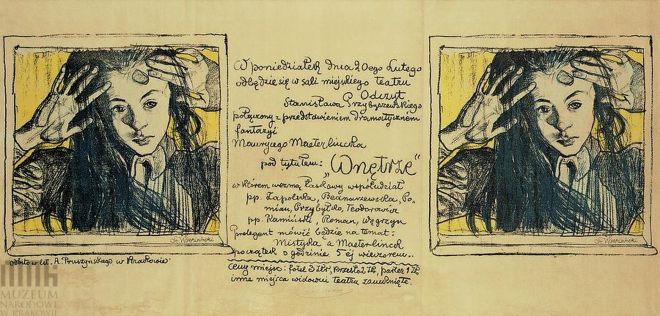 W poniedziałek dnia 20ego Lutego
odbędzie się w sali miejskiego teatru
Odczyt
Stanisława Przybyszewskiego
połączony z przedstawieniem dramatycznem
fantazyi
Maurycego Maeterlincka
pod tytułem: „Wnętrze"
w którem wezmą łaskawy współudział
pp. Zapolska, Bednarzewska, Po-
mian, Przybyłko, Teodorowicz
pp. Kamiński, Roman, Węgrzyn
Prelegent mówić będzie na temat:
Mistyka a Maeterlinck
początek o godzinie 5 ej wieczorem.
Ceny miejsc: fotel 3 złr, krzesło 2 złr, parter 1 złr
inne miejsca widowni teatru zamknięte.
St. Wyspiański
St. Wyspiański
odbito w lit. A. Pruszyńskiego w Krakowie
MUZEUM
NARODOWE
W KRAKOWIE